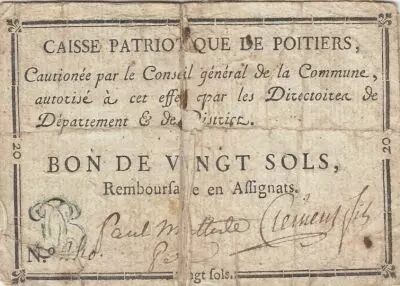 CAISSE PATRIOTIQUE DE POITIERS,
Cautionée par le Conseil général de la Commune,
autorisé à cet effet par les Directoires de
Département & de District.
20
20
BON DE VINGT SOLS,
Remboursable en Assignats.
N.o
Paul
Clément fils
vingt sols.